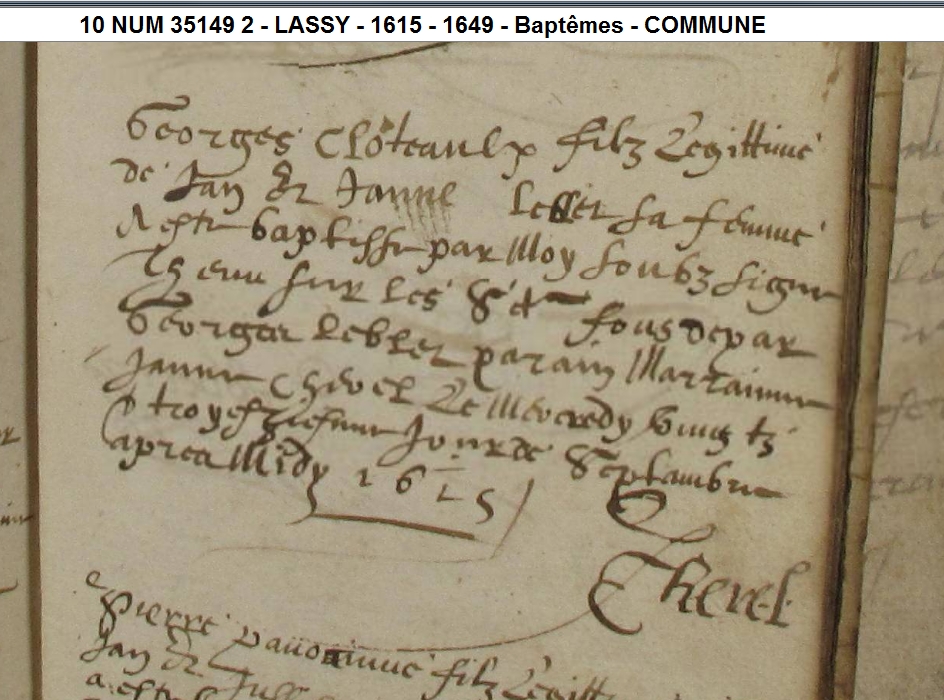 10 NUM 35149 2 - LASSY - 1615 - 1649 - Baptêmes - COMMUNE
Georges Clôteaulx filz Legittime
de Jan Et Janne sa femme
A este baptisse par Moy soubz signe
Tenu sur les Sts fons de par
Georges Leblet parain Marrainne
Janne Chevel Le Mercredy vingt
troyesziesme Jour de Septambre
apres Midy 1615
Pierre filz Legitt
Jan Et
a este